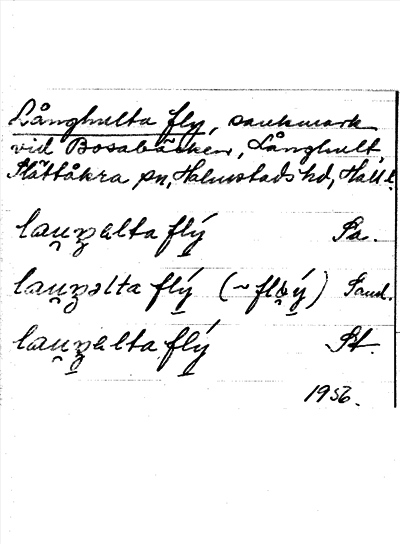 Långhulta fly, sankmark
vid Bosabäcken, Långhult,
Slättåkra sn, Halmstads hd, Hall. l.
lauŋalta flý Pa.
lauŋəlta flý (~ fləý) Sand.
lauŋalta flý St.
1956.